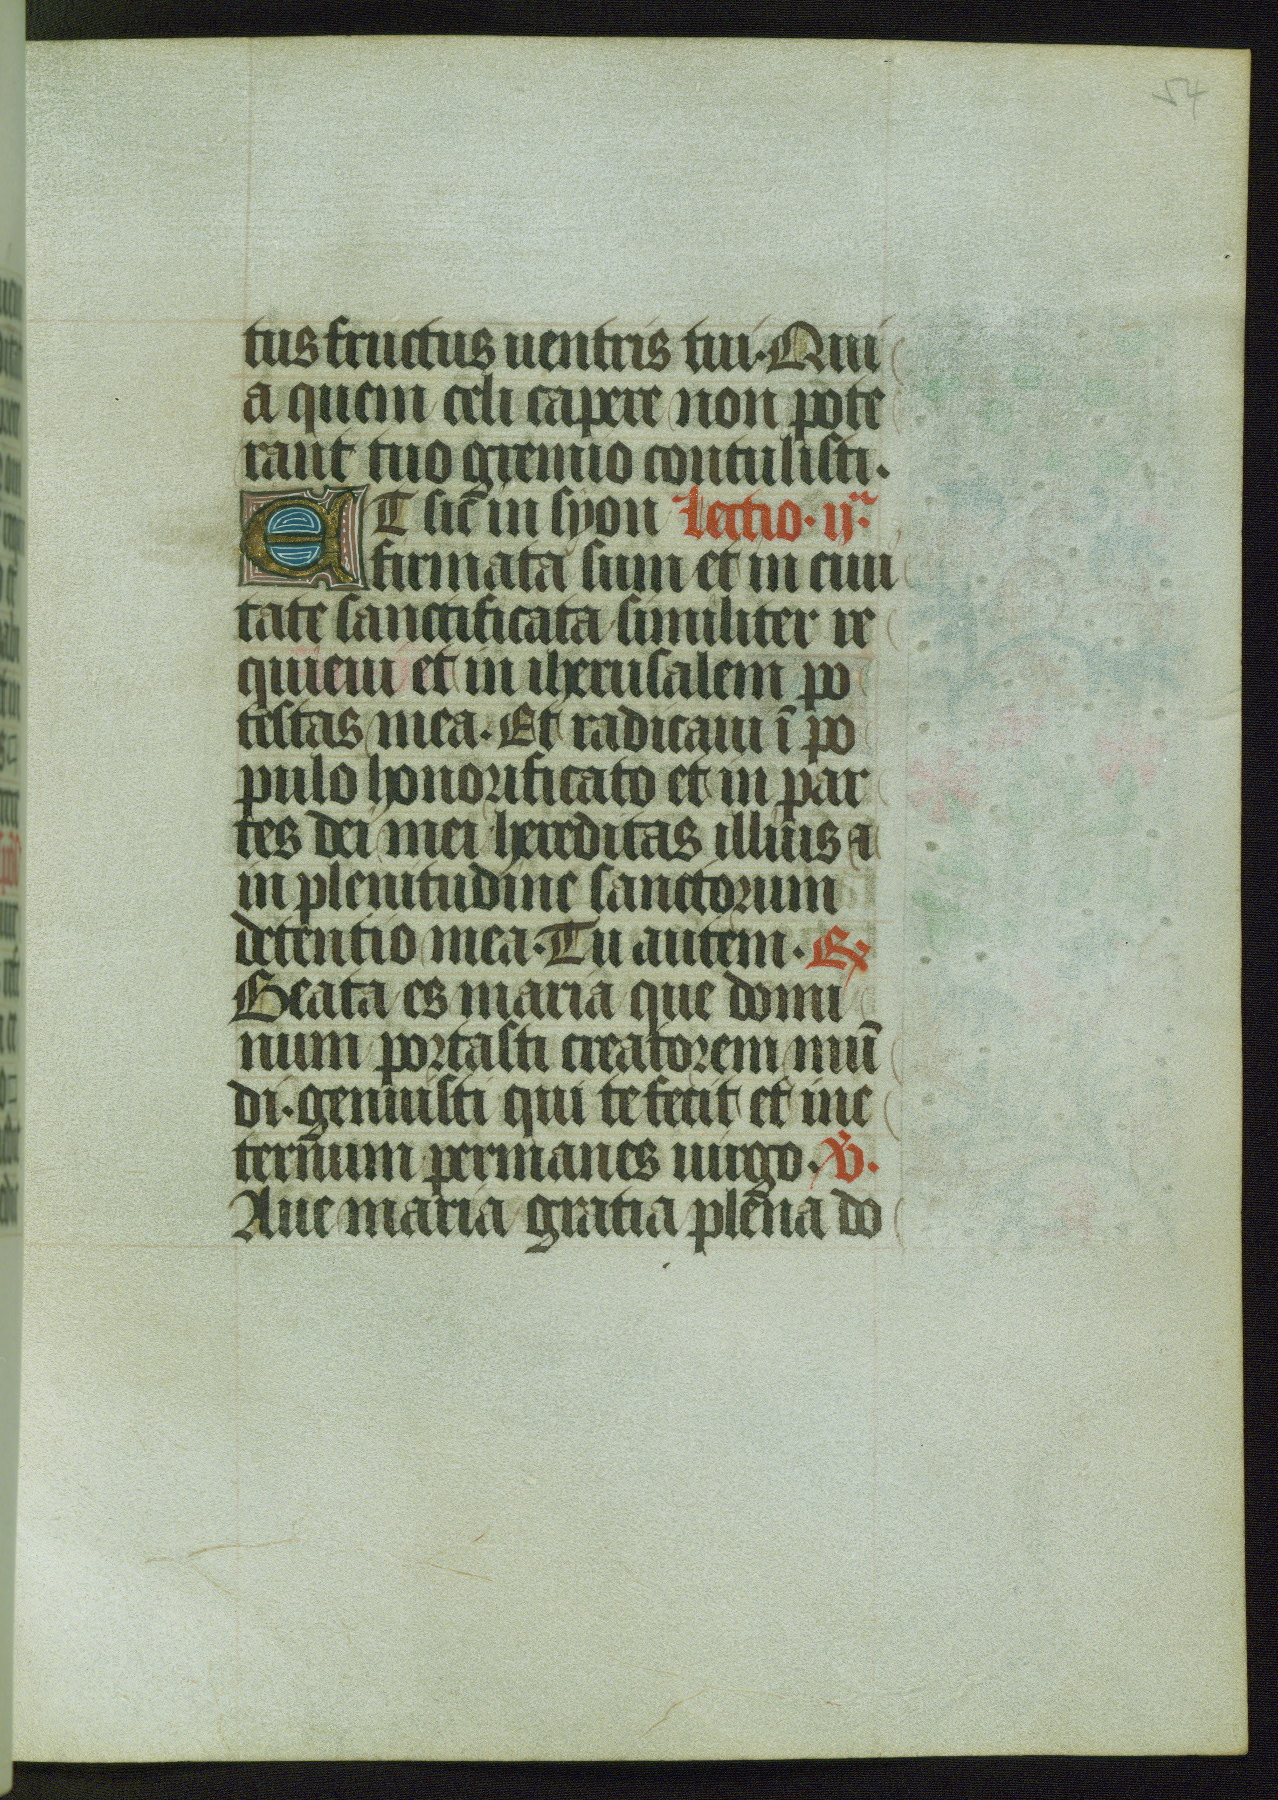 54
tus fructus uentris tui. Qui
a quem celi capere non pote
rant tuo gremio contulisti.
ET sic̄ in syon Lectio. ij.ª
firmata sum et in ciui
tate sanctificata similiter re
quieui et in iherusalem po
testas mea. Et radicaui ī po
pulo honorificato et in par
tes dei mei hereditas illius ⁊
in plenitudine sanctorum
detentio mea. Tu autem. ℟
Beata es maria que domi
num portasti creatorem mū
di. genuisti qui te fecit et in e
ternum permanes uirgo. ℣.
Aue maria gratia plena do